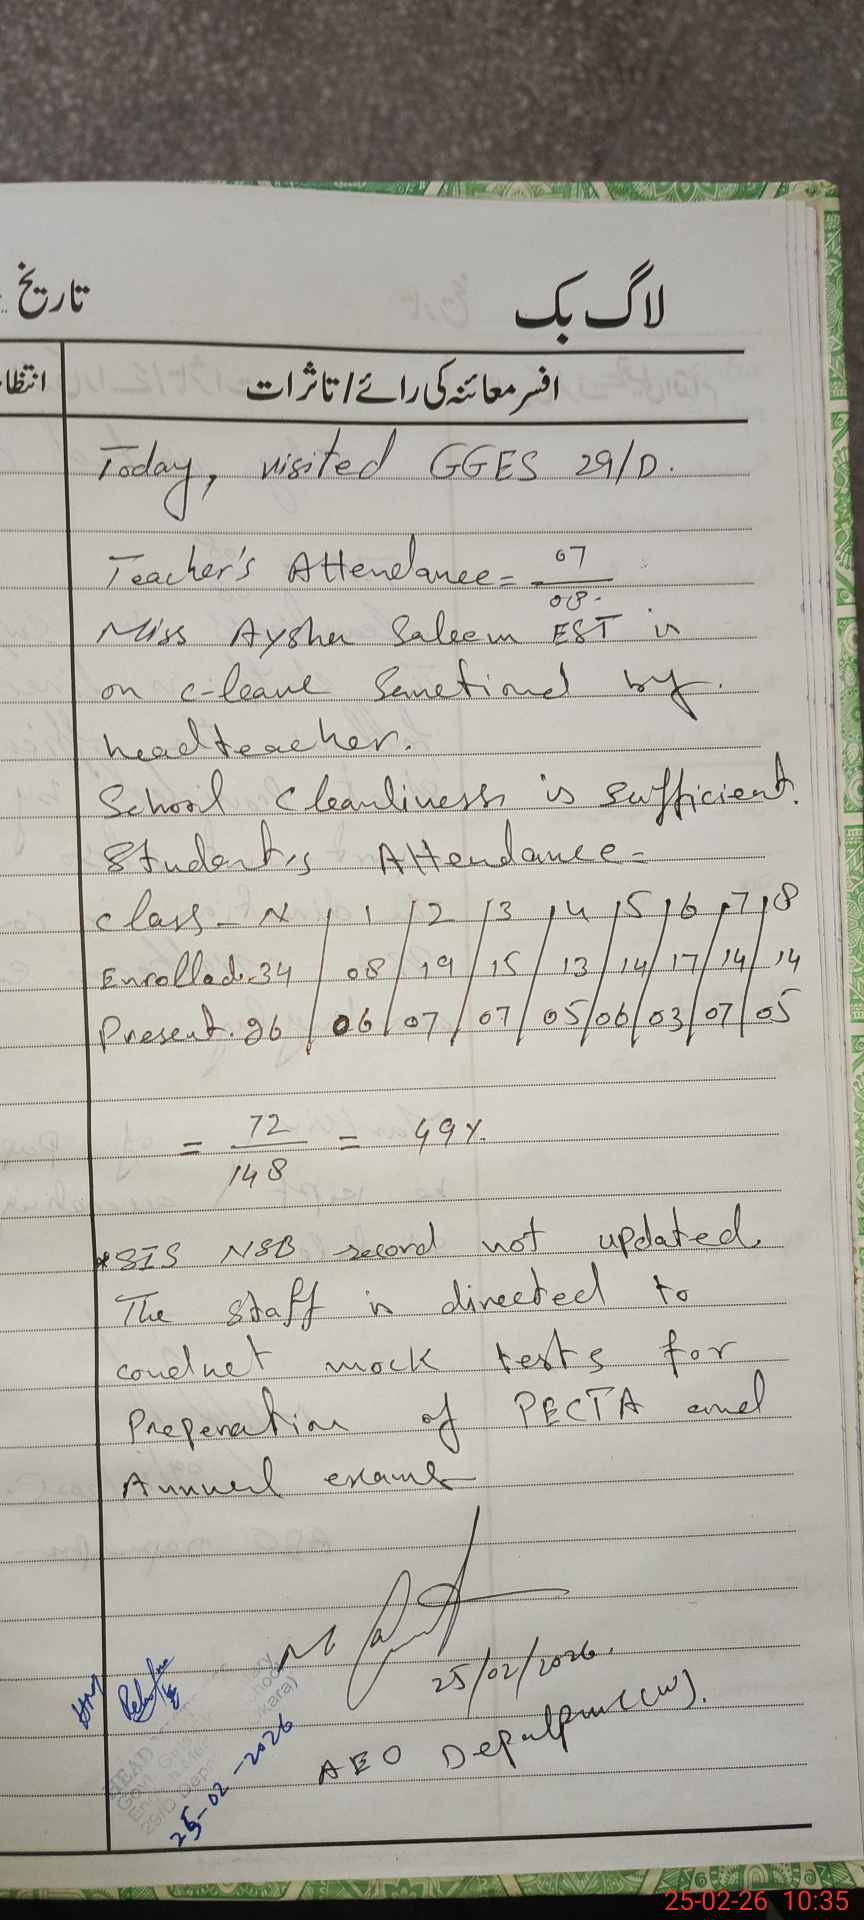 لاگ بک
تاریخ
افسر معائنہ کی رائے/تاثرات
Today, visited GGES 29/D.
Teacher's Attendance = 07/08.
Miss Aysha Saleem EST is
on c-leave Sanctioned by
headteacher.
School Cleanliness is sufficient.
Student,s Attendance =
Class - N | 1 | 2 | 3 | 4 | 5 | 6 | 7 | 8
Enrolled. 34 | 08 | 19 | 15 | 13 | 14 | 17 | 14 | 14
Present. 26 | 06 | 07 | 07 | 05 | 06 | 03 | 07 | 05
= 72/148 = 49%.
*SIS NSB record not updated.
The staff is directed to
conduct mock tests for
Preperation of PECTA and
Annual exams
25/02/2026.
AEO Depalpur (W).
HEAD
25-02-2026
25-02-26 10:35